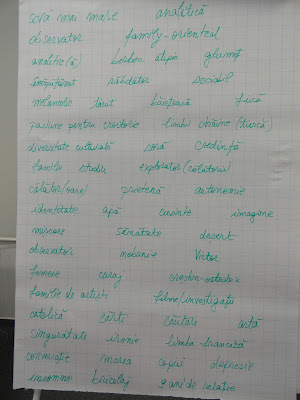 soră mai mare analitică
observator family-oriented
analitic(ă) haioc glumeț
îndrăgostit răbdător sociabil
melancolic tăcut bunică fiică
pasiune pentru croitorie limbi străine (turcă)
diversitate culturală soră credință
familie studiu explorator (călătorii)
călător(oare) prietenă autonomie
identitate apă cuvinte imagine
mișcare sănătate desert
observator nebunie Victor
femeie curaj creștin-ortodox
familie de artiști filme/investigații
catolică cărți căutări artă
singurătate ironie limba franceză
conversație marea copii depresie
insomnie bricolaj 9 ani de relație